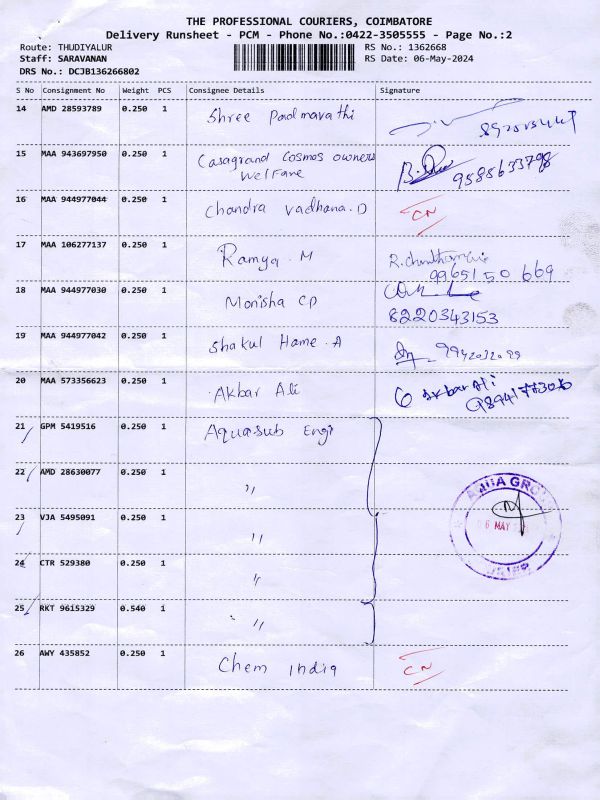 THE PROFESSIONAL COURIERS, COIMBATORE
Delivery Runsheet - PCM - Phone No.:0422-3505555 - Page No.:2
Route: THUDIYALUR RS No.: 1362668
Staff: SARAVANAN RS Date: 06-May-2024
DRS No.: DCJB136266802
S No Consignment No Weight PCS Consignee Details Signature
14 AMD 28593789 0.250 1 Shree Padmavathi
15 MAA 943697950 0.250 1 Casagrand Cosmos owners
Welfare 9585633798
16 MAA 944977044 0.250 1 Chandra Vadhana.D CN
17 MAA 106277137 0.250 1 Ramya.M
9965150669
18 MAA 944977030 0.250 1 Monisha CP
8220343153
19 MAA 944977042 0.250 1 Shakul Hame.A 9942032099
20 MAA 573356623 0.250 1 Akbar Ali Akbar Ali
21 GPM 5419516 0.250 1 Aquasub Engi
22 AMD 28630077 0.250 1 "
23 VJA 5495091 0.250 1 "
24 CTR 529380 0.250 1 "
25 RKT 9615329 0.540 1 "
26 AWY 435852 0.250 1 Chem India CN